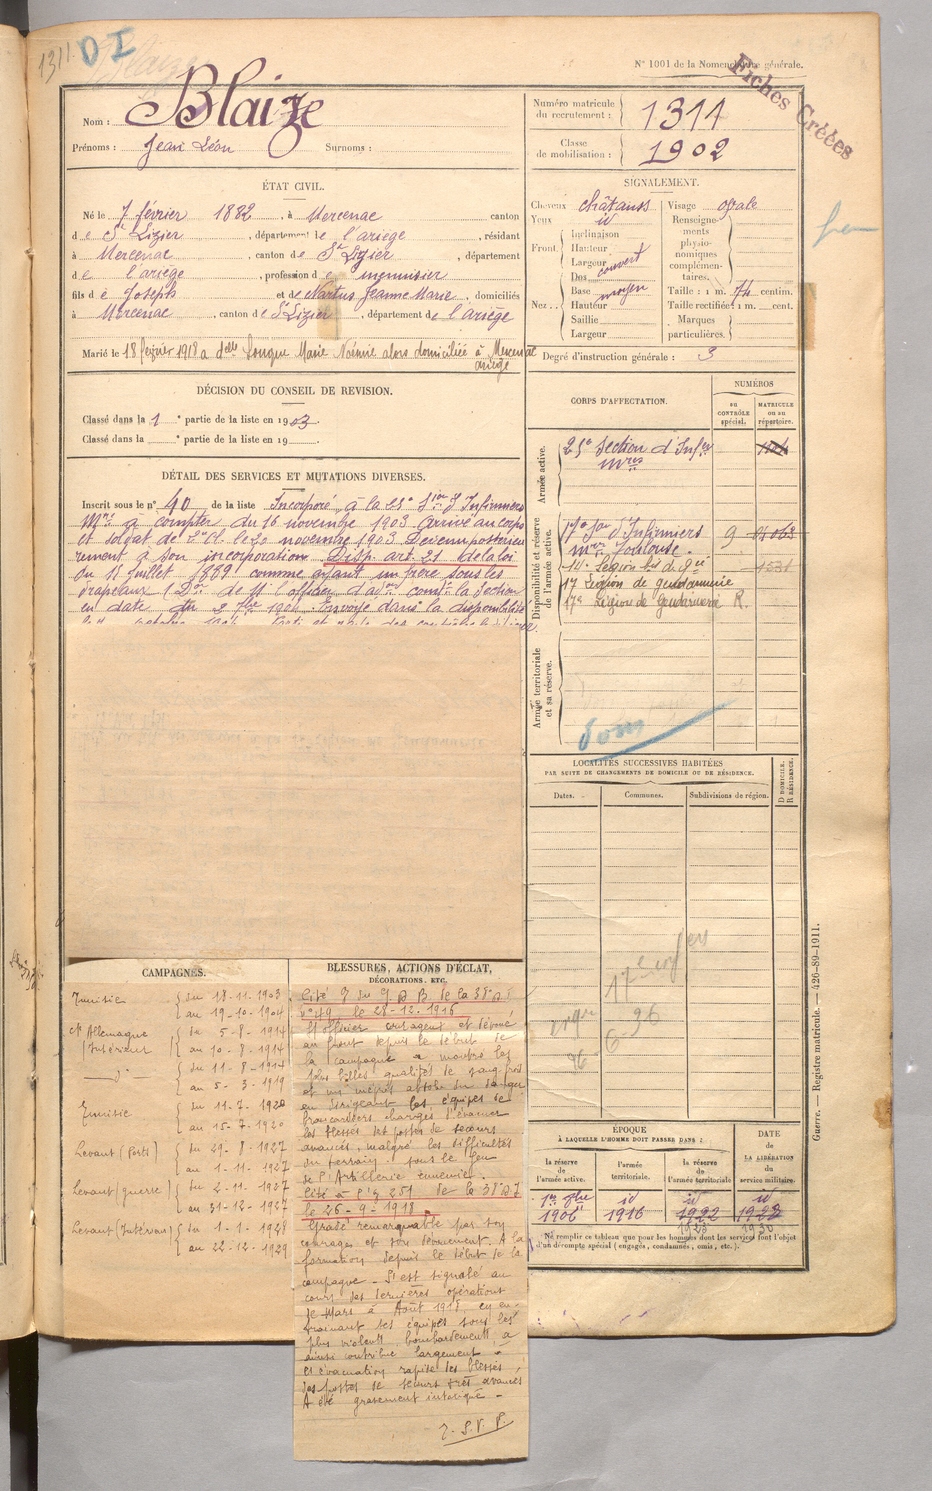 1311 DI
N° 1001 de la Nomenclature générale.
Fiches Créées
Nom : Blaize
Prénoms : Jean Léon Surnoms :
Numéro matricule du recrutement : 1311
Classe de mobilisation : 1902
ÉTAT CIVIL.
Né le 7 février 1882, à Mercenac canton
de St Lizier, département de l'ariège, résidant
à Mercenac, canton de St Lizier, département
de l'ariège, profession de menuisier
fils de Joseph et de Nartus Jeanne Marie, domiciliés
à Mercenac, canton de St Lizier, département de l'ariège
Marié le 18 février 1918 a delle Longue Marie Noémie alors domiciliée à Mercenac
ariège
SIGNALEMENT.
Cheveux châtains
Yeux id
Front. Inclinaison
Hauteur
Largeur couvert
Nez. Dos
Base moyen
Hauteur
Saillie
Largeur
Visage ovale
Renseignements physionomiques complémentaires.
Taille : 1 m. 74 centim.
Taille rectifiée : 1 m. cent.
Marques particulières.
Degré d'instruction générale : 3
DÉCISION DU CONSEIL DE REVISION.
Classé dans la 1 e partie de la liste en 1903
Classé dans la e partie de la liste en 19
DÉTAIL DES SERVICES ET MUTATIONS DIVERSES.
Inscrit sous le n° 40 de la liste Incorporé à la 25e Son d'Infirmiers
Mres à compter du 16 novembre 1903 Arrivé au corps
et soldat de 2e Cl. le 20 novembre 1903 Devenu postérieu
rement à son incorporation Disp. art. 21 de la loi
du 15 juillet 1889 comme ayant un frère sous les
drapeaux (Don de M l'officier d'adon comt la Section
en date du Envoyé dans la disponibilité
CORPS D'AFFECTATION.
NUMÉROS
au CONTRÔLE spécial.
MATRICULE ou au répertoire.
Armée active.
25e Section d'Infers
mres
Disponibilité et réserve de l'armée active.
17e Son d'Infirmiers 9
mres Toulouse.
14e Légion
17 Légion de gendarmerie
17e Légion de Gendarmerie R.
Armée territoriale et sa réserve.
LOCALITÉS SUCCESSIVES HABITÉES
PAR SUITE DE CHANGEMENTS DE DOMICILE OU DE RÉSIDENCE.
Dates. Communes. Subdivisions de région. D DOMICILE. R RÉSIDENCE.
CAMPAGNES.
Tunisie du 18-11-1903
au 19-10-1904
ct Allemagne du 5-8-1914
Intérieur au 10-8-1914
du 11-8-1914
au 5-3-1919
Tunisie du 11-7-1920
au 15-7-1920
Levant (forts) du 29-8-1927
au 1-11-1927
Levant (guerre) du 2-11-1927
au 31-12-1927
Levant (Intérieur) du 1-1-1928
au 22-12-1929
BLESSURES, ACTIONS D'ÉCLAT,
DÉCORATIONS, ETC.
Cité
n° 49 le 28-12-1916
S/officier courageux et dévoué
au front depuis le début de
la campagne a montré les
plus belles qualités de sang froid
et un mépris absolu du danger
en dirigeant les équipes de
brancardiers chargés d'évacuer
les blessés des postes de secours
avancés, malgré les difficultés
du terrain. sous le feu
de l'artillerie ennemie.
Cité à l'o/g 251 de la 38e D I
le 26-9-1918.
Gradé remarquable par son
courage et son dévouement. A la
formation depuis le début de la
campagne - S'est signalé au
cours des dernières opérations
de Mars à Août 1918, en en-
traînant ses équipes sous les
plus violents bombardements, a
ainsi contribué largement à
l'évacuation rapide des blessés
des postes de secours très avancés
A été gravement intoxiqué -
T. S. V. P.
ÉPOQUE
À LAQUELLE L'HOMME DOIT PASSER DANS :
la réserve de l'armée active. l'armée territoriale. la réserve de l'armée territoriale.
DATE DE LA LIBÉRATION du service militaire.
1er 9bre 1906 id 1916 id 1922 id 1928
Ne remplir ce tableau que pour les hommes dont les services font l'objet
d'un décompte spécial (engagés, condamnés, omis, etc.).
Guerre. — Registre matricule. — 426-89-1911.